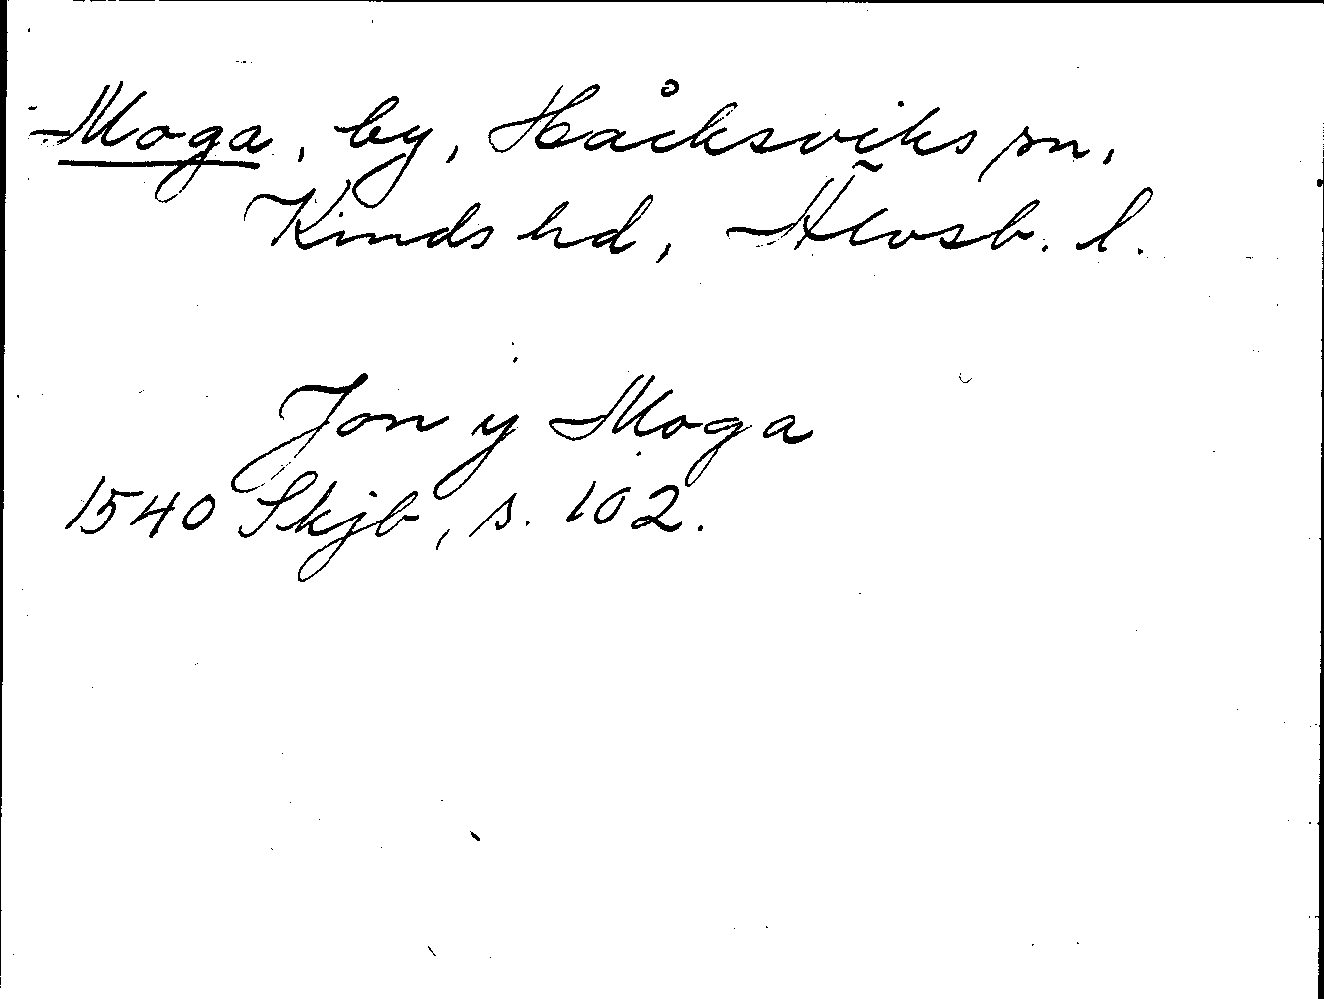 Moga, by, Håcksviks sn,
Kinds hd, Älvsb. l.
Jon y Moga
1540 Skjb, s. 102.